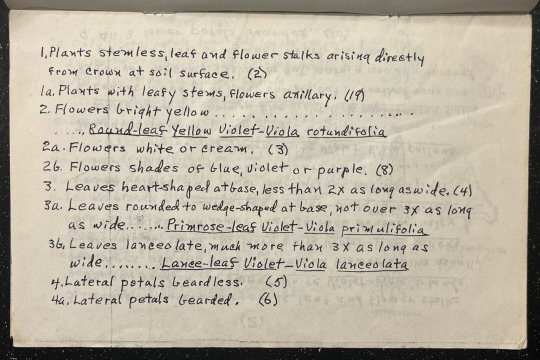 1, Plants stemless, leaf and flower stalks arising directly
from crown at soil surface. (2)
1a. Plants with leafy stems, flowers axillary. (19)
2. Flowers bright yellow . . . . . . . . . . . . . . . . . . . .
. . . . . Round-leaf Yellow Violet-Viola rotundifolia
2a. Flowers white or cream. (3)
2b. Flowers shades of blue, violet or purple. (8)
3. Leaves heart-shaped at base, less than 2x as long as wide. (4)
3a. Leaves rounded to wedge-shaped at base, not over 3x as long
as wide....... Primrose-leaf Violet-Viola primulifolia
3b. Leaves lanceolate, much more than 3x as long as
wide........ Lance-leaf Violet-Viola lanceolata
4. Lateral petals beardless. (5)
4a. Lateral petals bearded. (6)